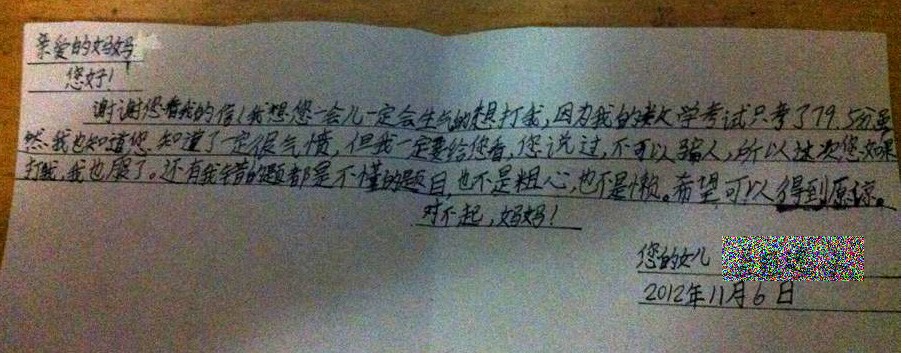 亲爱的妈妈
您好!
谢谢您看我的信!我想您一会儿一定会生气的想打我,因为我的数学考试只考了79.5分虽
然我也知道您知道了一定很气愤,但我一定要给您看,您说过,不可以骗人,所以这次您如果
打我,我也服了。还有我错的题都是不懂的题目,也不是粗心,也不是懒。希望可以得到原谅。
对不起,妈妈!
您的女儿
2012年11月6日